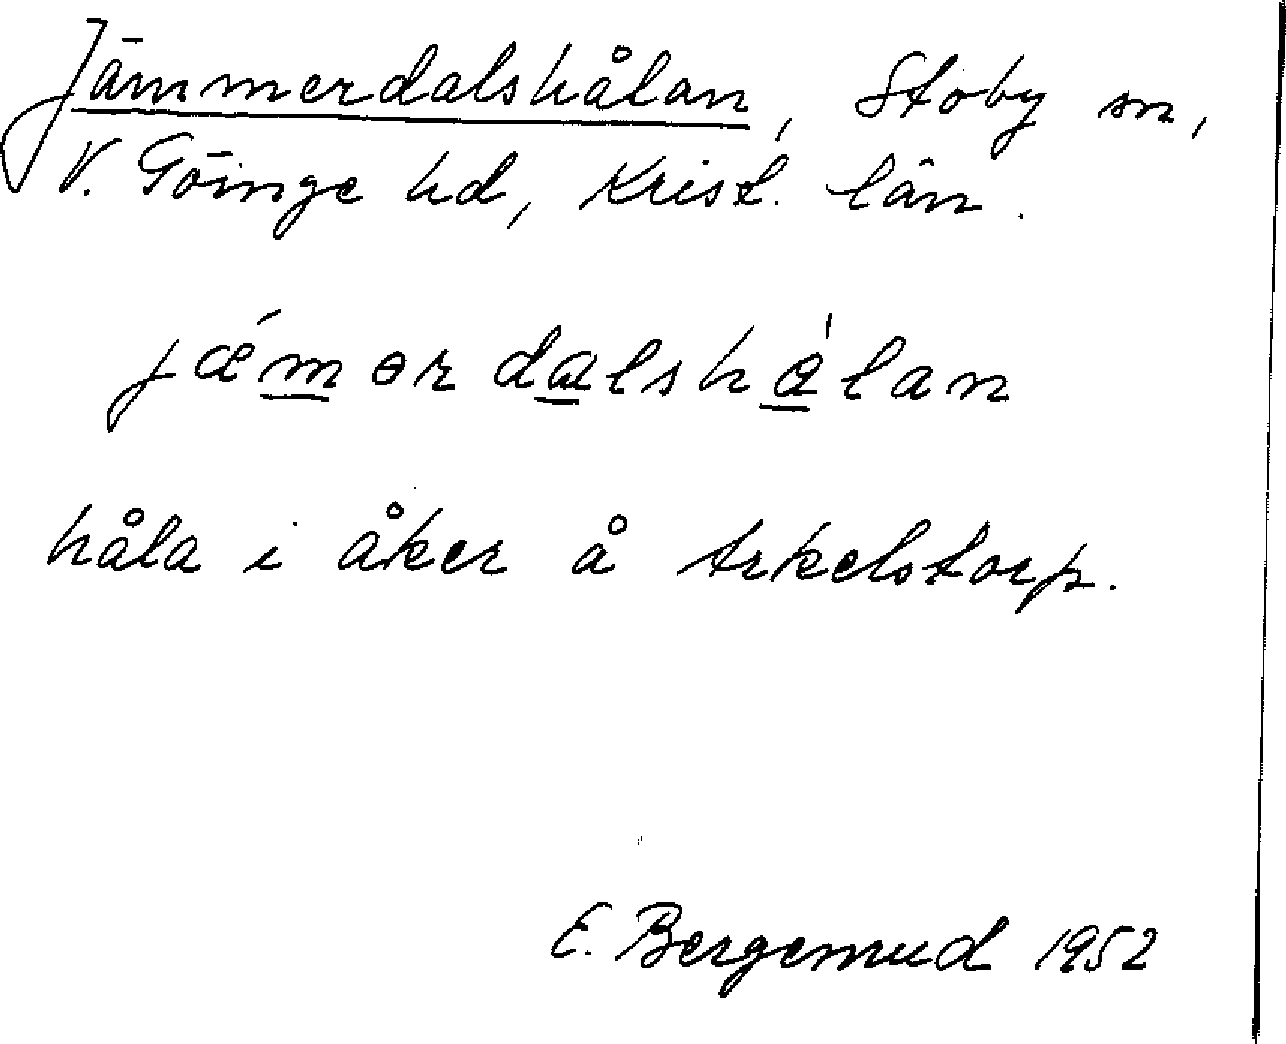 Jämmerdalshålan, Stoby sn,
V. Göinge hd, Krist. län.
jǽmərdalshålan
håla i åker å Arkelstorp.
E. Bergemud 1952